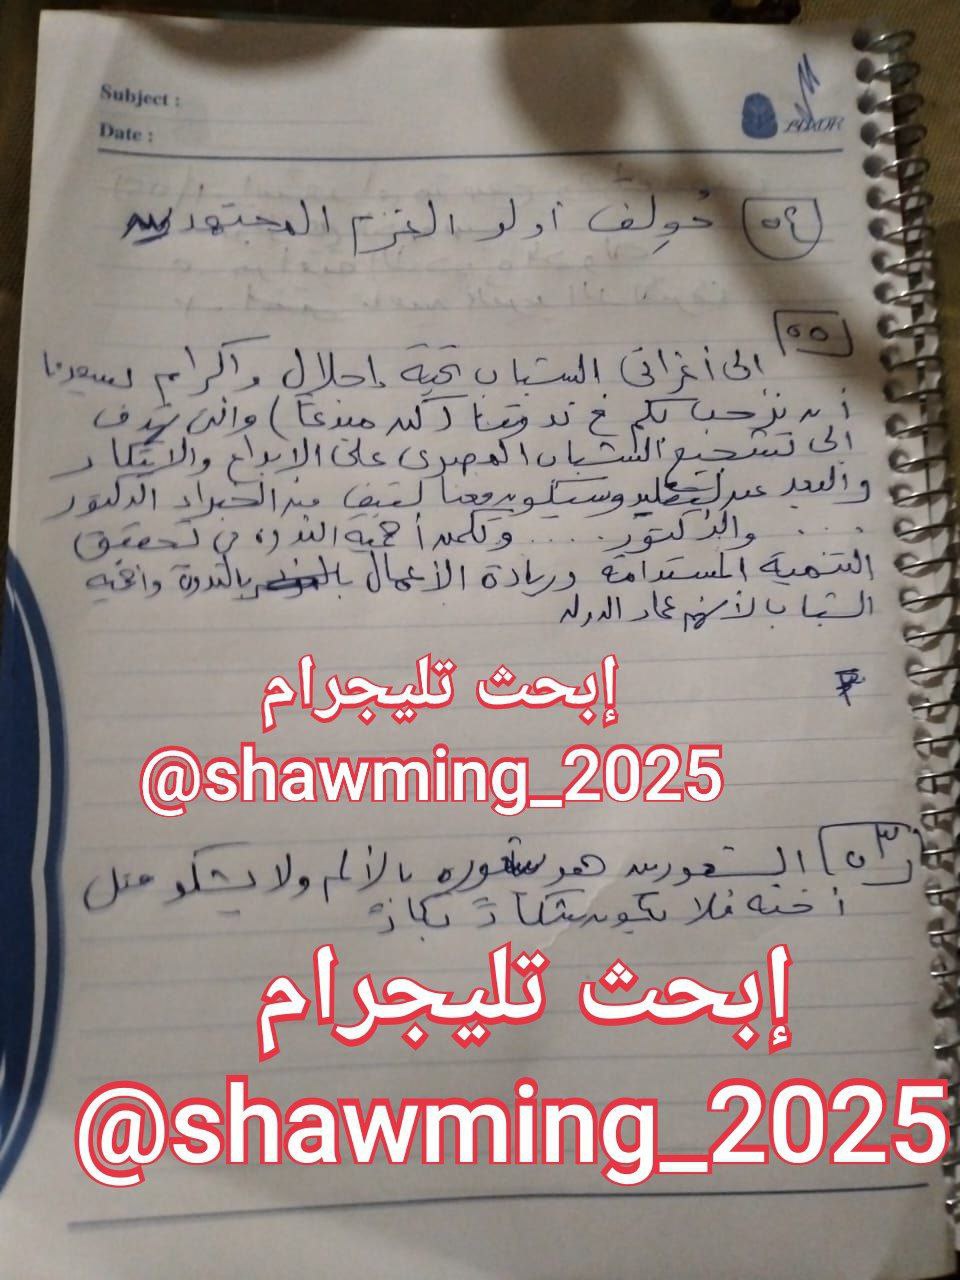 Subject :
Date :
LUXOR
٥٤ كُوفِئ أولو العزم المجتهدين
٥٥
الى أعزائى الشباب تحية إجلال واكرام يسعدنا
أن نرحب بكم فى ندوتنا (كن مبدعاً) والتى تهدف
الى تشجيع الشباب المصرى على الابداع والابتكار
والبعد عن التقليد وسيكون معنا لفيف من الخبراء الدكتور
.... والدكتور .... وتكمن أهمية الندوة فى تحقيق
التنمية المستدامة وريادة الأعمال بالندوة واهمية
الشباب لأنهم عماد الدولة
إبحث تليجرام
@shawming_2025
٥٣ الشعور هو شعوره بالألم ولا يشكو مثل
أخته فلا يكون
إبحث تليجرام
@shawming_2025